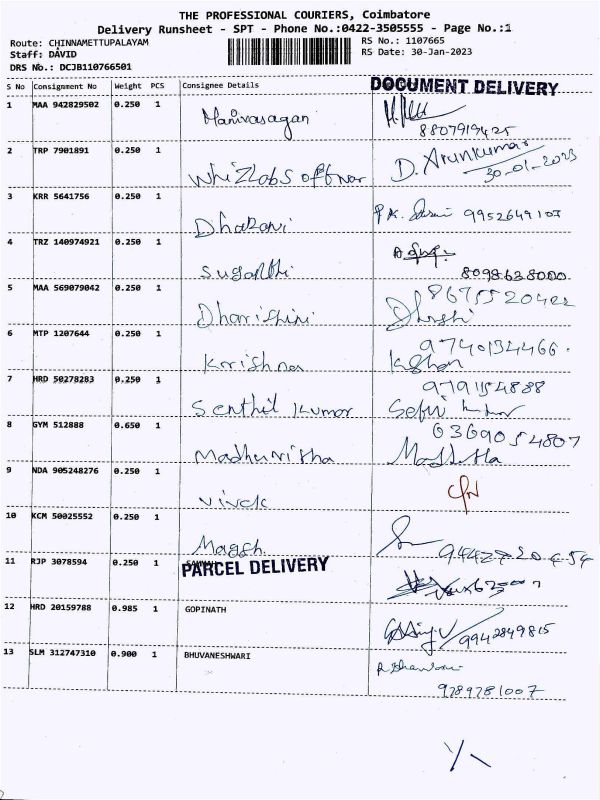 THE PROFESSIONAL COURIERS, Coimbatore
Delivery Runsheet - SPT - Phone No.:0422-3505555 - Page No.:1
Route: CHINNAMETTUPALAYAM RS No.: 1107665
Staff: DAVID RS Date: 30-Jan-2023
DRS No.: DCJB110766501
S No Consignment No Weight PCS Consignee Details DOCUMENT DELIVERY
1 MAA 942829502 0.250 1 Manivasagan
8807919425
2 TRP 7901891 0.250 1 Whizlabs Softwar D. Arunkumar
30-01-2023
3 KRR 5641756 0.250 1 Dharani P.K. 9952649107
4 TRZ 140974921 0.250 1 Suganthi
8098638000
5 MAA 569079042 0.250 1 Dharishini 8675520422
Dharshi
6 MTP 1207644 0.250 1 Krrishna 9740134466.
Kishan
7 HRD 50278283 0.250 1 Senthil Kumar 9791154888
8 GYM 512888 0.650 1 Madhunisha 6369054807
9 NDA 905248276 0.250 1 Vivek
10 KCM 50025552 0.250 1 Magesh
11 RJP 3078594 0.250 1 PARCEL DELIVERY
12 HRD 20159788 0.985 1 GOPINATH
9942849815
13 SLM 312747310 0.900 1 BHUVANESHWARI
9789781007